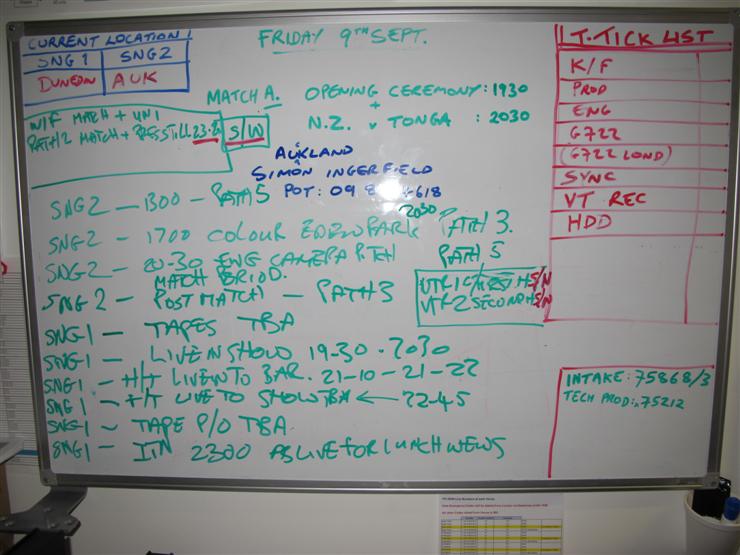 CURRENT LOCATION
SNG1 SNG2
DUNEDN AUK
FRIDAY 9TH SEPT.
MATCH A. OPENING CEREMONY: 1930
+
N.Z. v TONGA : 2030
W/F MATCH + UNI
PATH 2 MATCH + PRESS TILL 23.
S/W
AUKLAND
SIMON INGERFIELD
POT: 09 8 618
SNG2 — 1300 — PATH 5
2030
SNG2 — 1700 COLOUR EDEN PARK PATH 3.
SNG2 — 20-30 ENG CAMERA PITCH PATH 5
MATCH PERIOD.
SNG2 — POST MATCH — PATH 3
VTR1 S/N
VTR2 SECOND H S/N
SNG1 — TAPES TBA
SNG1 — LIVE IN SHOW 19-30 - 2030
SNG1 — H/T LIVE INTO BAR. 21-10-21-22
SNG1 — F/T LIVE TO SHOW TBA ← 22-45
SNG1 — TAPE P/O TBA
SNG1 — ITN 2300 AS LIVE FOR LUNCH NEWS
T-TICK LIST
K/F
PROD
ENG
G722
(G722 LOND)
SYNC
VT REC
HDD
INTAKE: 75868/3
TECH PROD: 75212